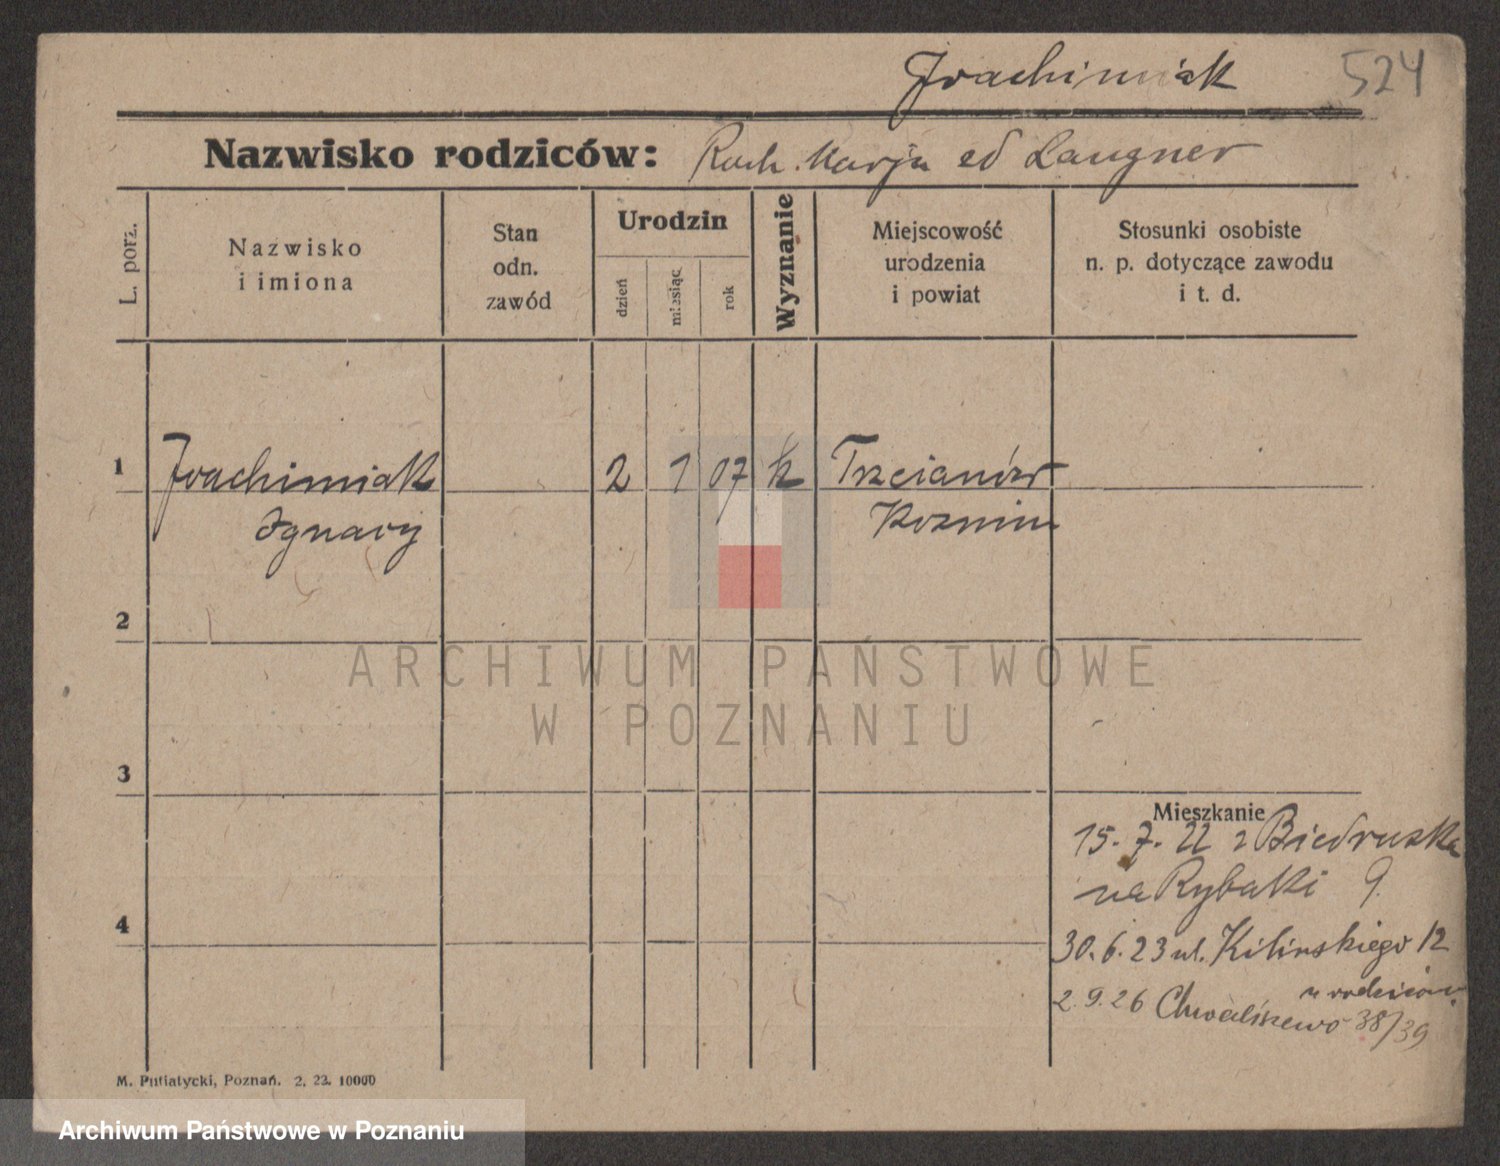 Joachimiak 524
Nazwisko rodziców: Roch Marja ed Langner
L. porz.
Nazwisko
i imiona
Stan
odn.
zawód
Urodzin
dzień
miesiąc
rok
Wyznanie
Miejscowość
urodzenia
i powiat
Stosunki osobiste
n. p. dotyczące zawodu
i t. d.
1 Joachimiak 2 1 07 k Trzcianów
Ignacy Kozmin
2
ARCHIWUM PAŃSTWOWE
W POZNANIU
3
Mieszkanie
15. 7. 22 z Biedruska
na Rybaki 9.
4
30. 6. 23 ul. Kilinskiego 12
u rodziców
2. 9. 26 Chwaliszewo 38/39
M. Putiatycki, Poznań. 2. 23. 10000
Archiwum Państwowe w Poznaniu